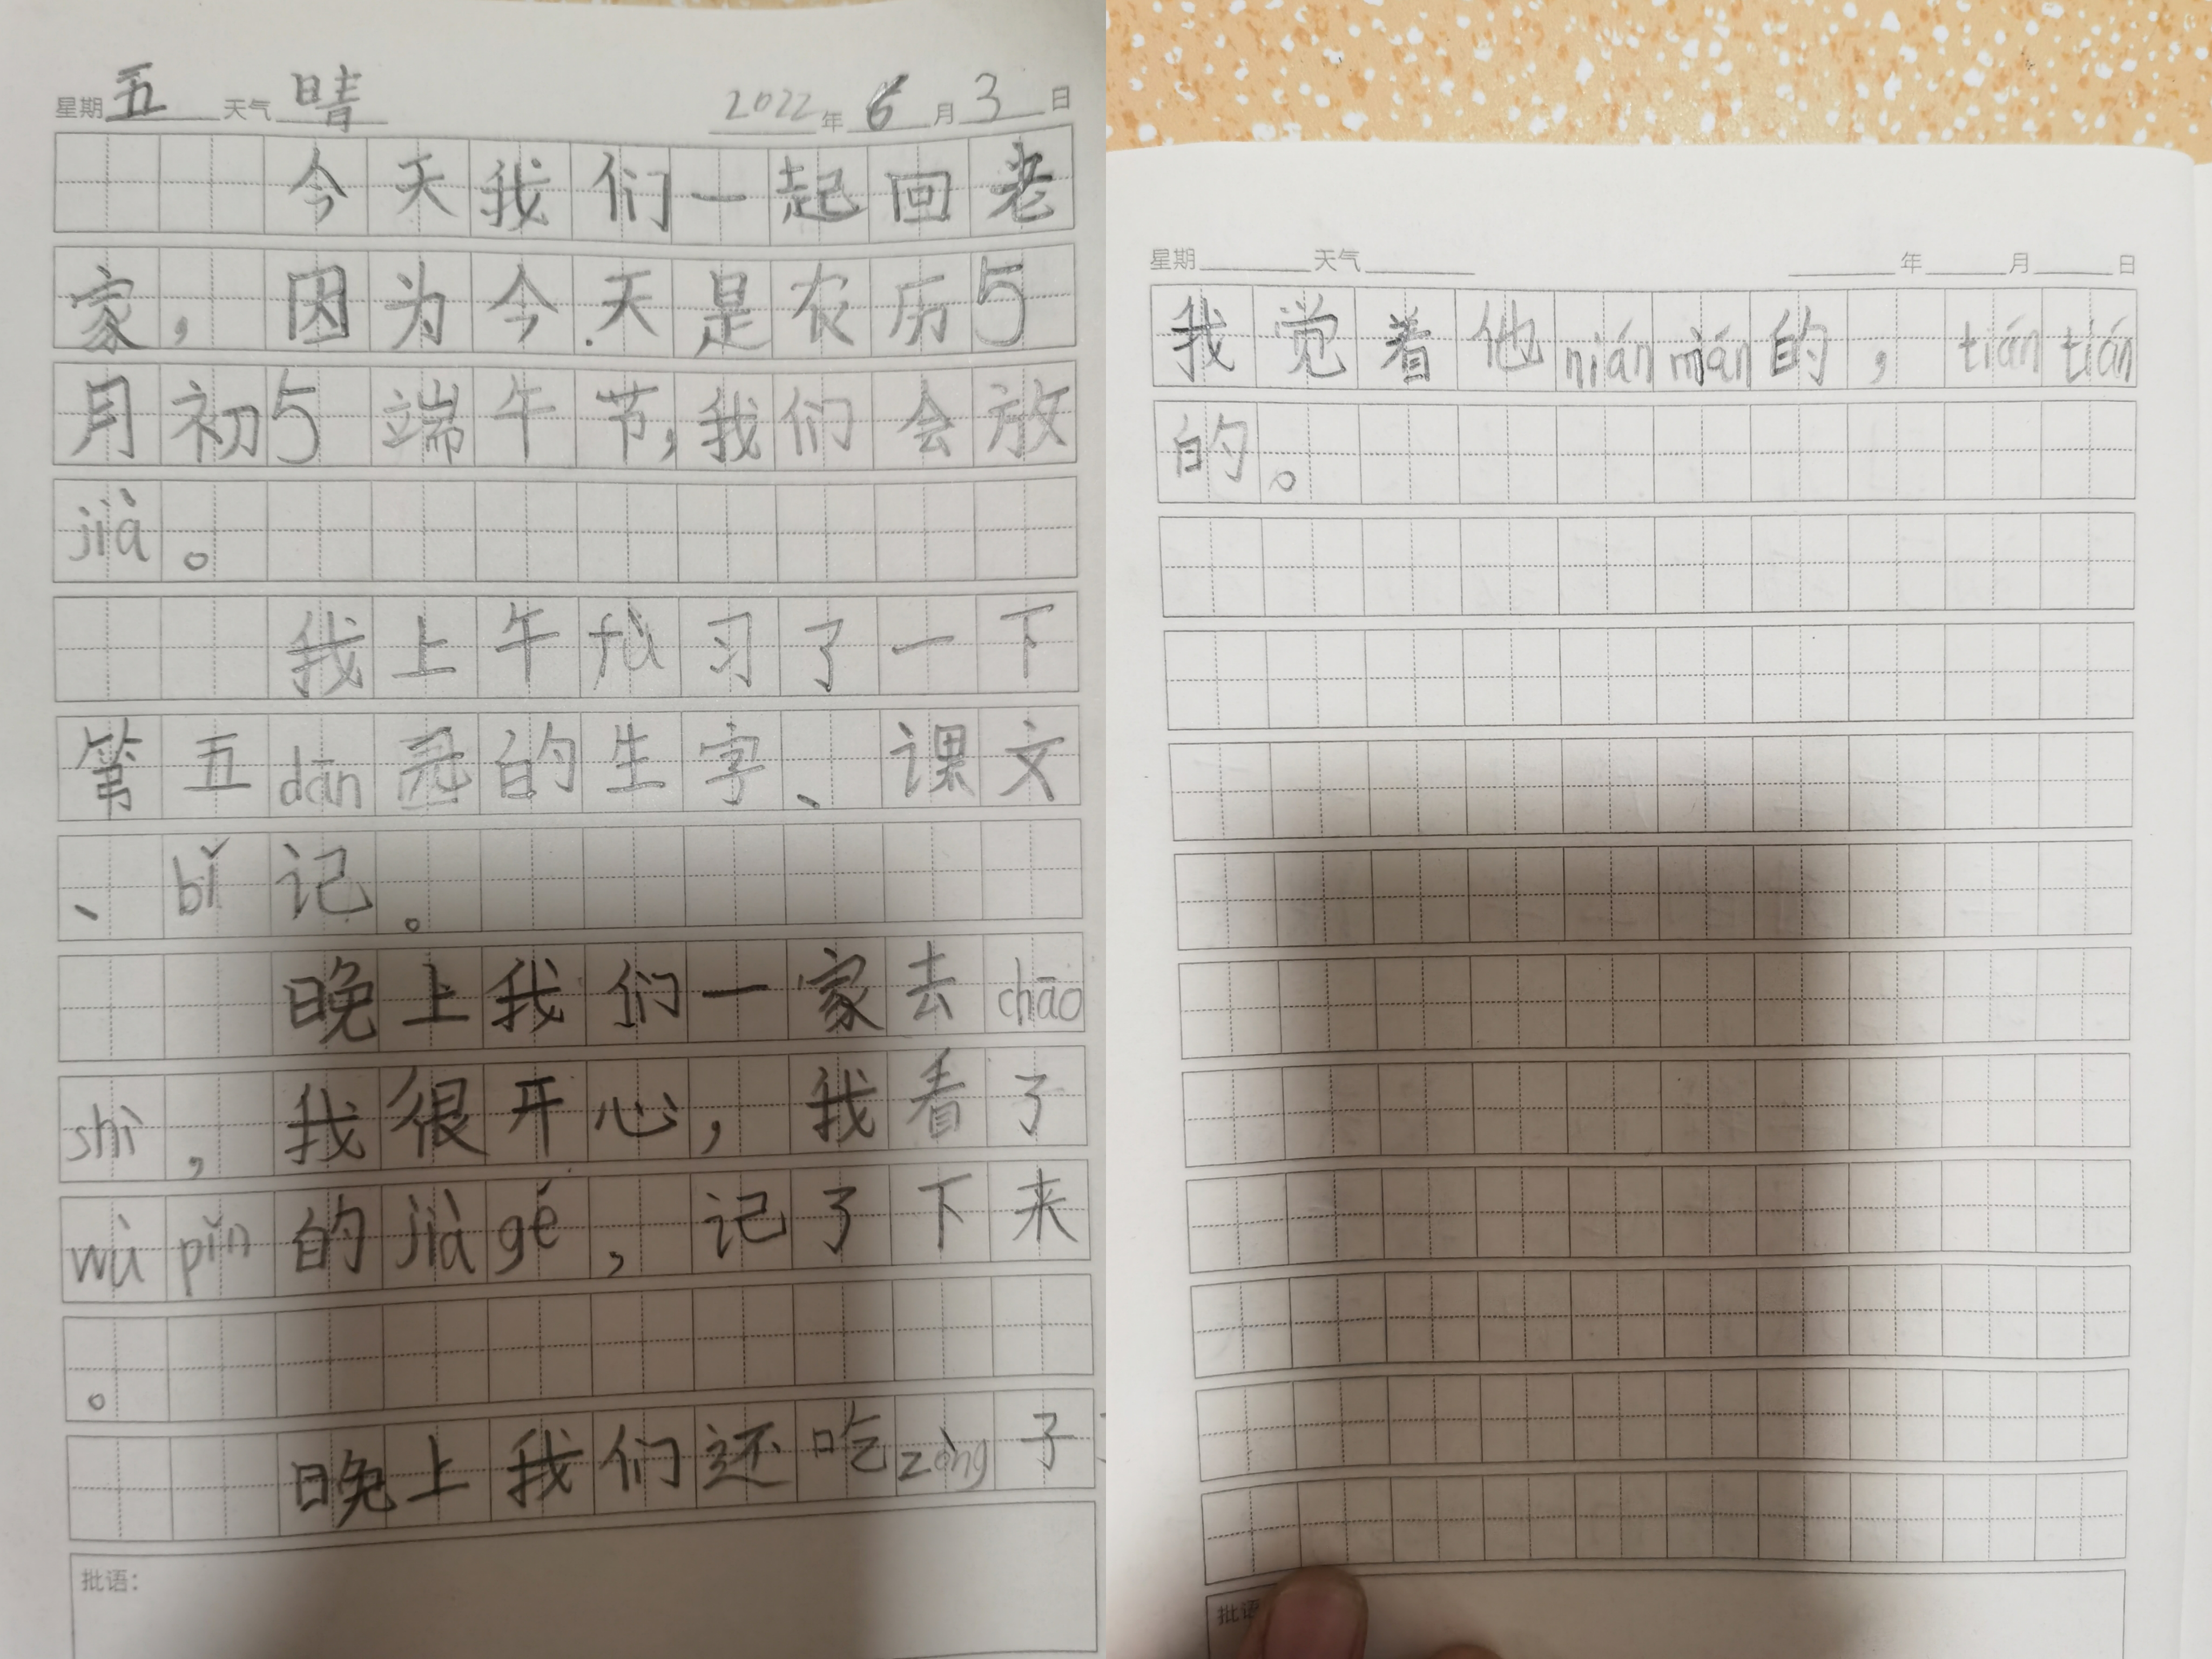 星期五 天气晴 2022年6月3日
今天我们一起回老
家，因为今天是农历5
月初5端午节，我们会放
jià。
我上午fù习了一下
第五dān元的生字、课文
、bǐ记。
晚上我们一家去chāo
shì，我很开心，我看了
wù pǐn的jià gé，记了下来
。
晚上我们还吃zòng子，
批语：
星期 天气 年 月 日
我觉着他nián mián的，tián tián
的。
批语